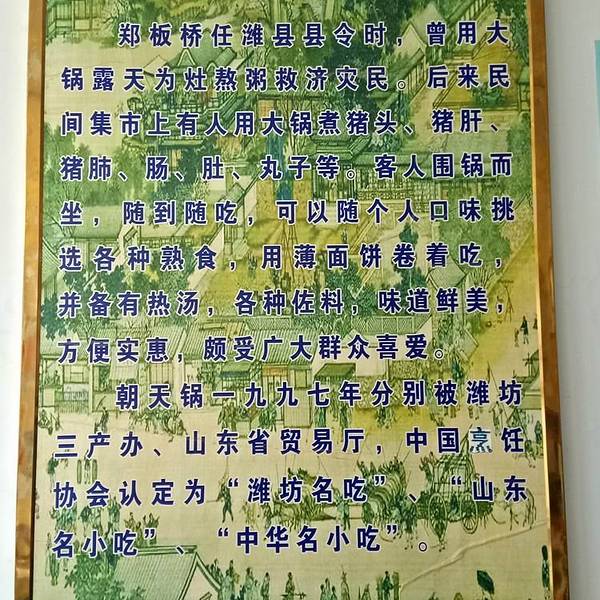 郑板桥任潍县县令时，曾用大
锅露天为灶熬粥救济灾民。后来民
间集市上有人用大锅煮猪头、猪肝、
猪肺、肠、肚、丸子等。客人围锅而
坐，随到随吃，可以随个人口味挑
选各种熟食，用薄面饼卷着吃，
并备有热汤，各种佐料，味道鲜美，
方便实惠，颇受广大群众喜爱。
朝天锅一九九七年分别被潍坊
三产办、山东省贸易厅，中国烹饪
协会认定为“潍坊名吃”、“山东
名小吃”、“中华名小吃”。